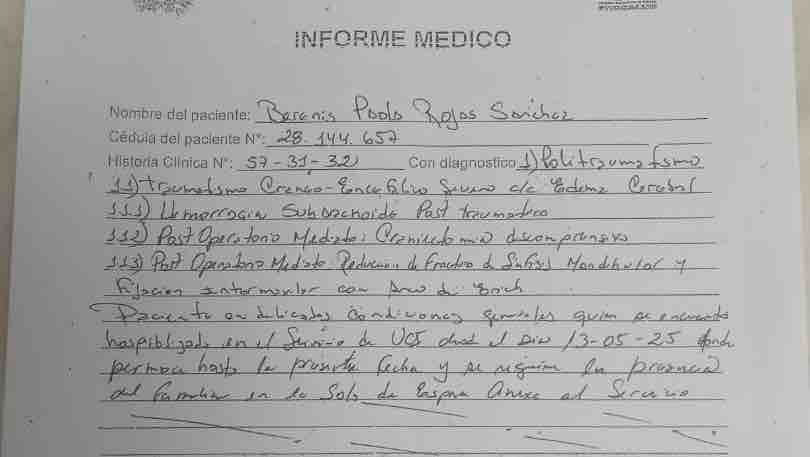 INFORME MEDICO
Nombre del paciente: Berenis Paola Rojas Sanchez
Cédula del paciente N°: 28.144.657
Historia Clinica N°: 57-31-32 Con diagnostico 1) Politraumatismo
1.1) traumatismo Craneo-Encefálico Severo c/c Edema Cerebral
1.1.1) Hemorragia Subaracnoide Post traumatica
1.1.2) Post Operatorio Mediato: Craniectomia discompresiva
1.1.3) Post Operatorio Mediato Reduccion de Fractura de Sinfisis Mandibular y
Fijacion intermaxilar con Arco de Erich
Paciente en delicadas Condiciones generales quien se encuentra
hospitalizada en el Servicio de UCI desde el Dia 13-05-25 donde
permanece hasta la presente fecha y se requiere la presencia
del familiar en la Sala de Espera Anexa al Servicio